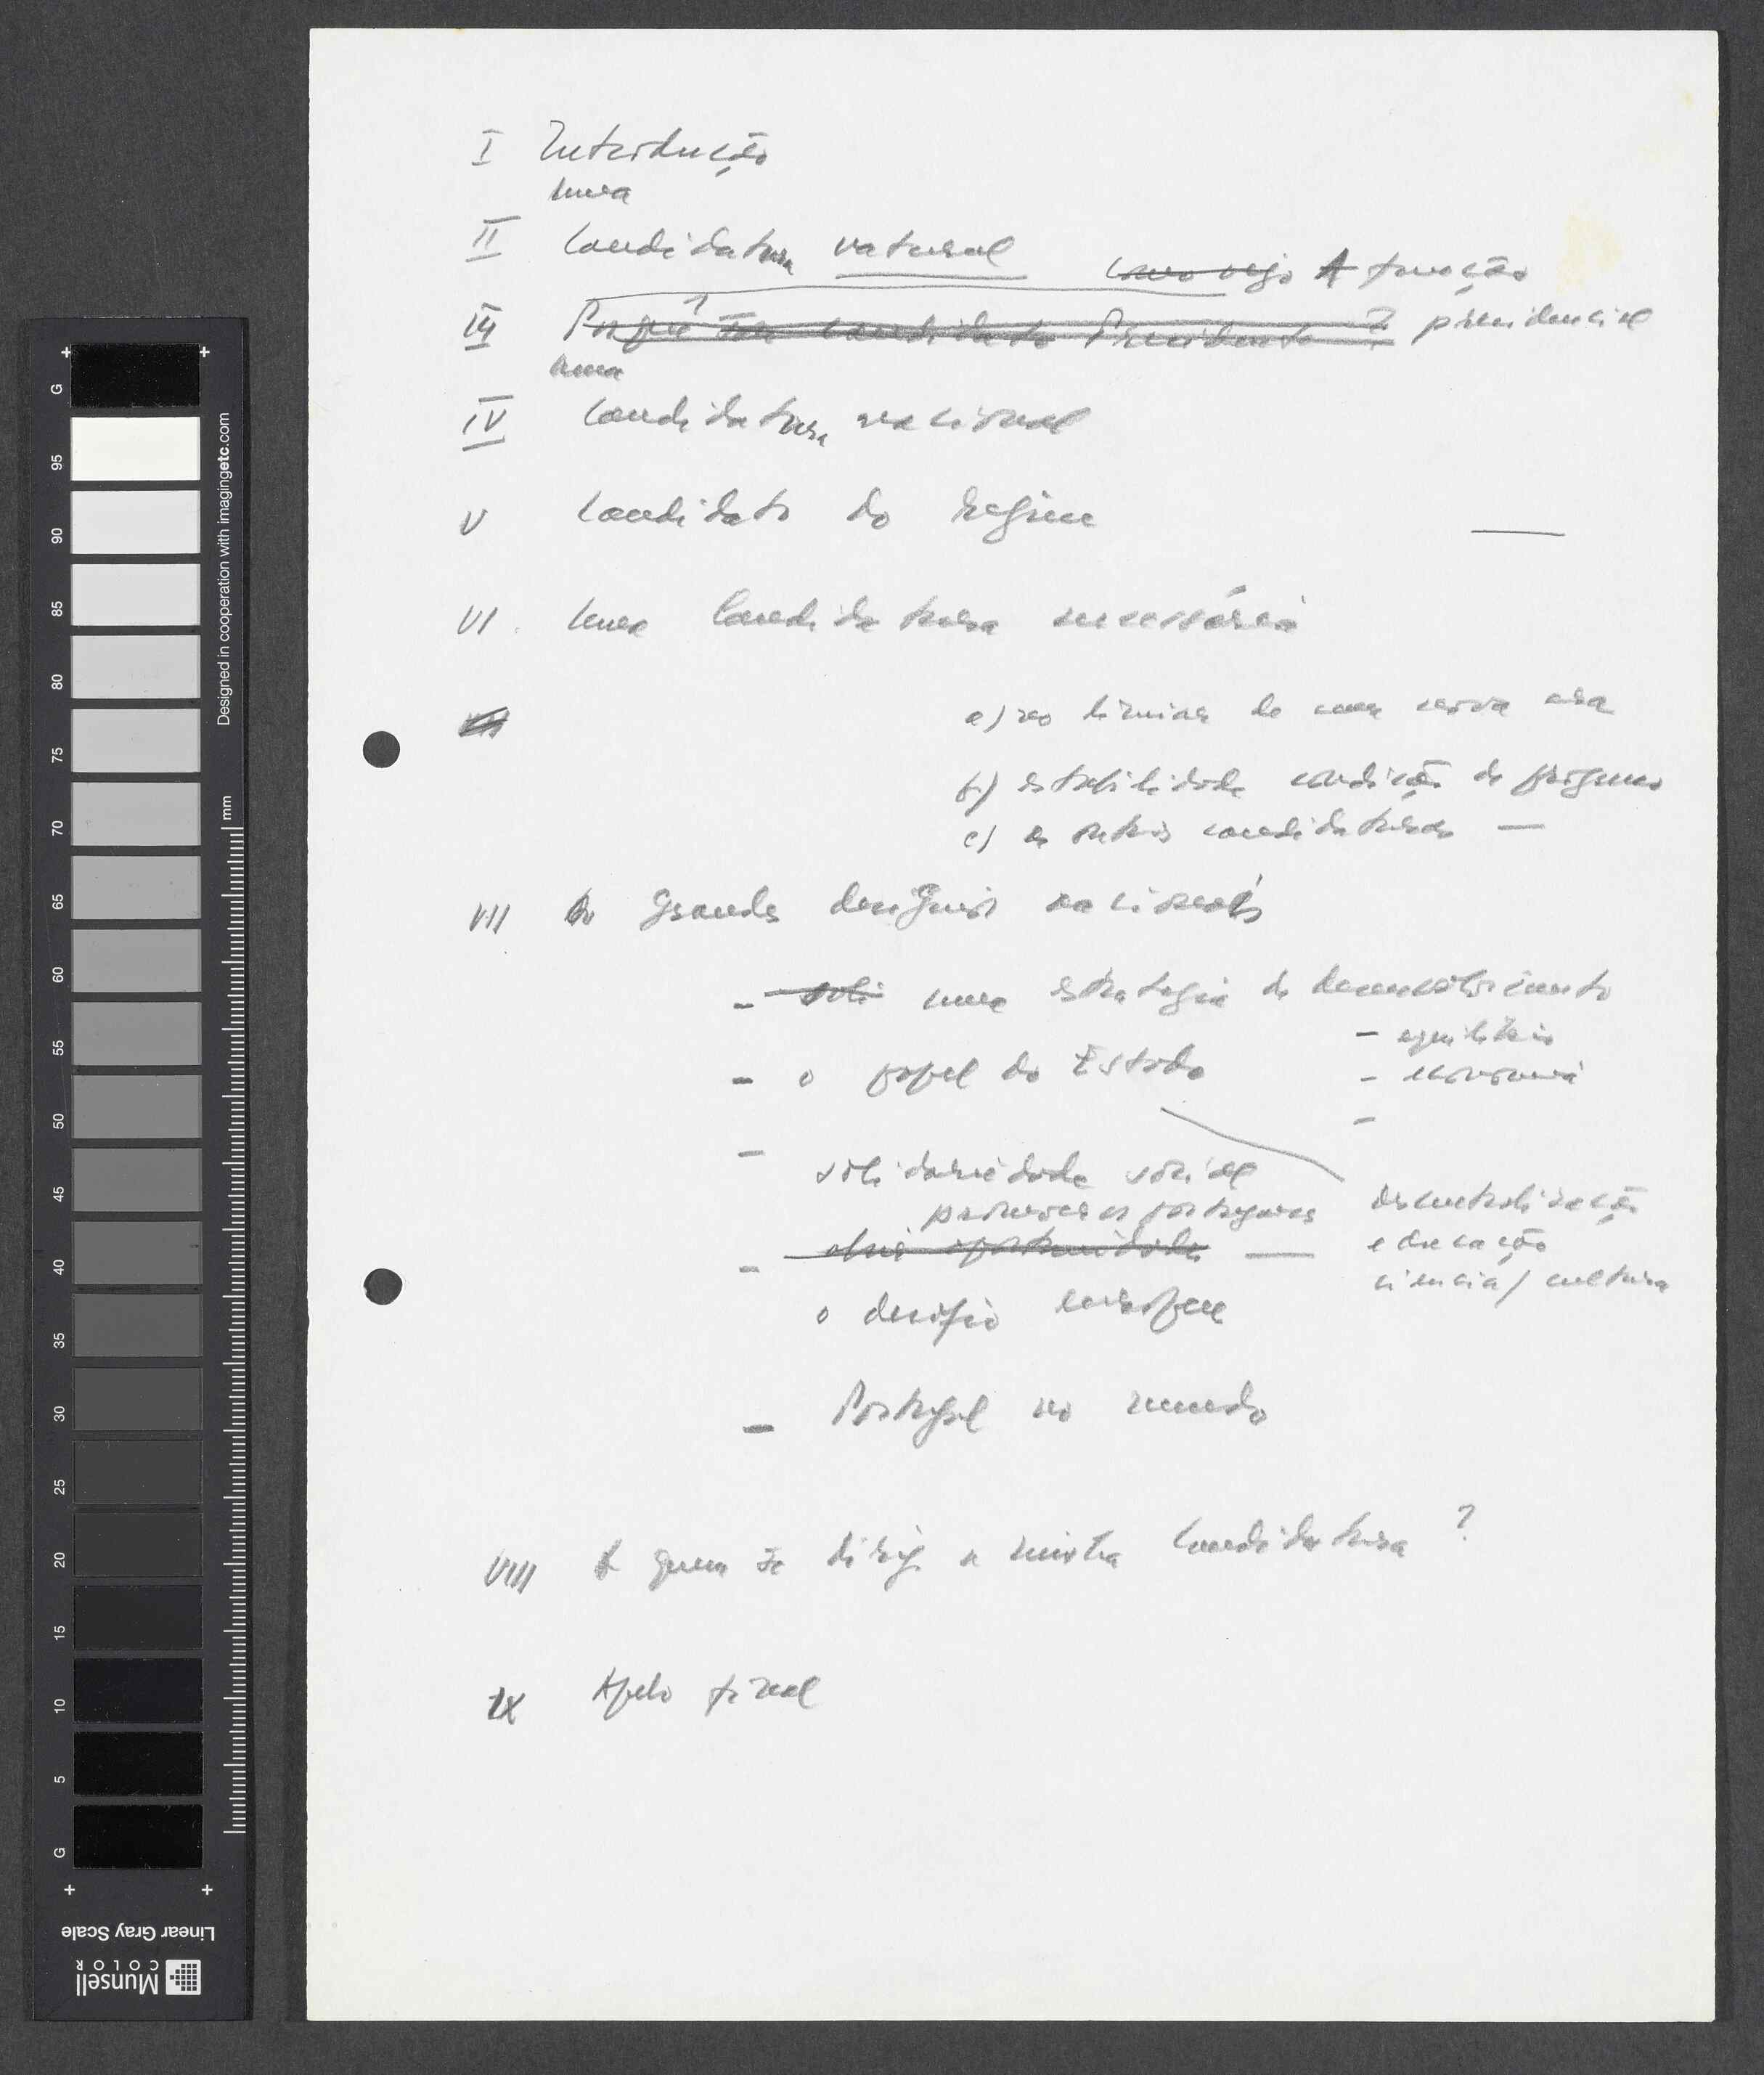 I Introdução
uma
II Candidatura natural
como vejo A função
III Porquê ser candidato Presidente ? presidencial
uma
IV Candidatura nacional
V Candidato do regime
VI. uma Candidatura necessária
a) no limiar de uma nova era
b) estabilidade condição de progresso
c) as outras candidaturas —
VII Os grandes desígnios nacionais
- soli uma estratégia de desenvolvimento
- equilíbrio
- o papel do Estado
- economia
-
- solidariedade social
promover os portugueses
descentralização
- oportunidades —
educação
ciência / cultura
o desafio europeu
- Portugal no mundo
VIII A quem se dirige a minha Candidatura ?
IX Apelo final
G
95
90
85
80
75
70
65
60
55
50
45
40
35
30
25
20
15
10
5
G
Designed in cooperation with imagingetc.com
mm
Linear Gray Scale
Munsell
COLOR